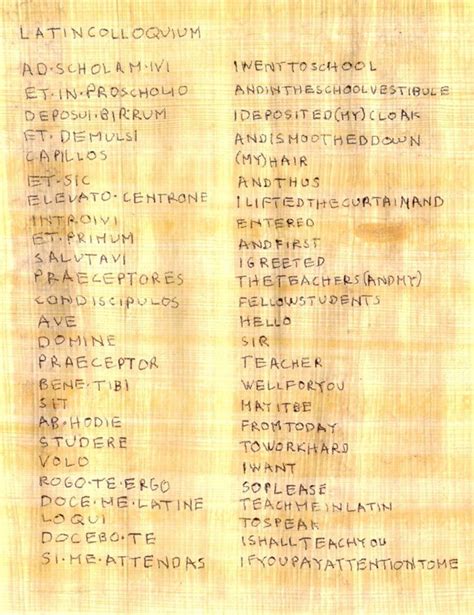 LATINCOLLOQUIUM
AD·SCHOLAM·IVI IWENTTOSCHOOL
ET·IN·PROSCHOLIO ANDINTHESCHOOLVESTIBULE
DEPOSUI·BIRRUM IDEPOSITED(MY)CLOAK
ET·DEMULSI ANDISMOOTHEDDOWN
CAPILLOS (MY)HAIR
ET·SIC ANDTHUS
ELEVATO·CENTRONE ILIFTEDTHECURTAINAND
INTROIVI ENTERED
ET·PRIMUM ANDFIRST
SALUTAVI IGREETED
PRAECEPTORES THETEACHERS(ANDMY)
CONDISCIPULOS FELLOWSTUDENTS
AVE HELLO
DOMINE SIR
PRAECEPTOR TEACHER
BENE·TIBI WELLFORYOU
SIT MAYITBE
AB·HODIE FROMTODAY
STUDERE TOWORKHARD
VOLO IWANT
ROGO·TE·ERGO SOPLEASE
DOCE·ME·LATINE TEACHMEINLATIN
LOQUI TOSPEAK
DOCEBO·TE ISHALLTEACHYOU
SI·ME·ATTENDAS IFYOUPAYATTENTIONTOME